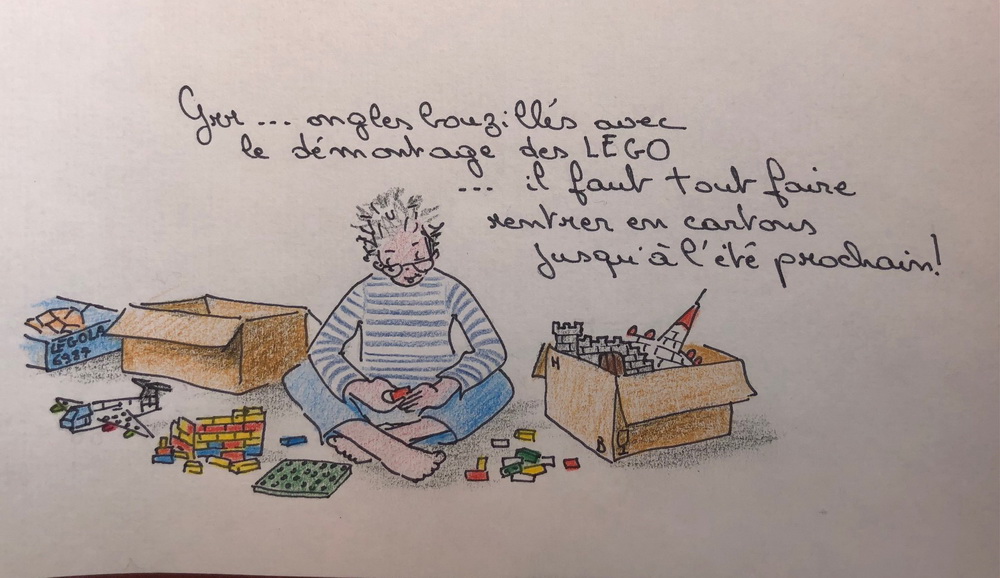 Grr... ongles bouzillés avec
le démontage des LEGO
... il faut tout faire
rentrer en cartons
jusqu'à l'été prochain!
LEGOLA
6927
H
B